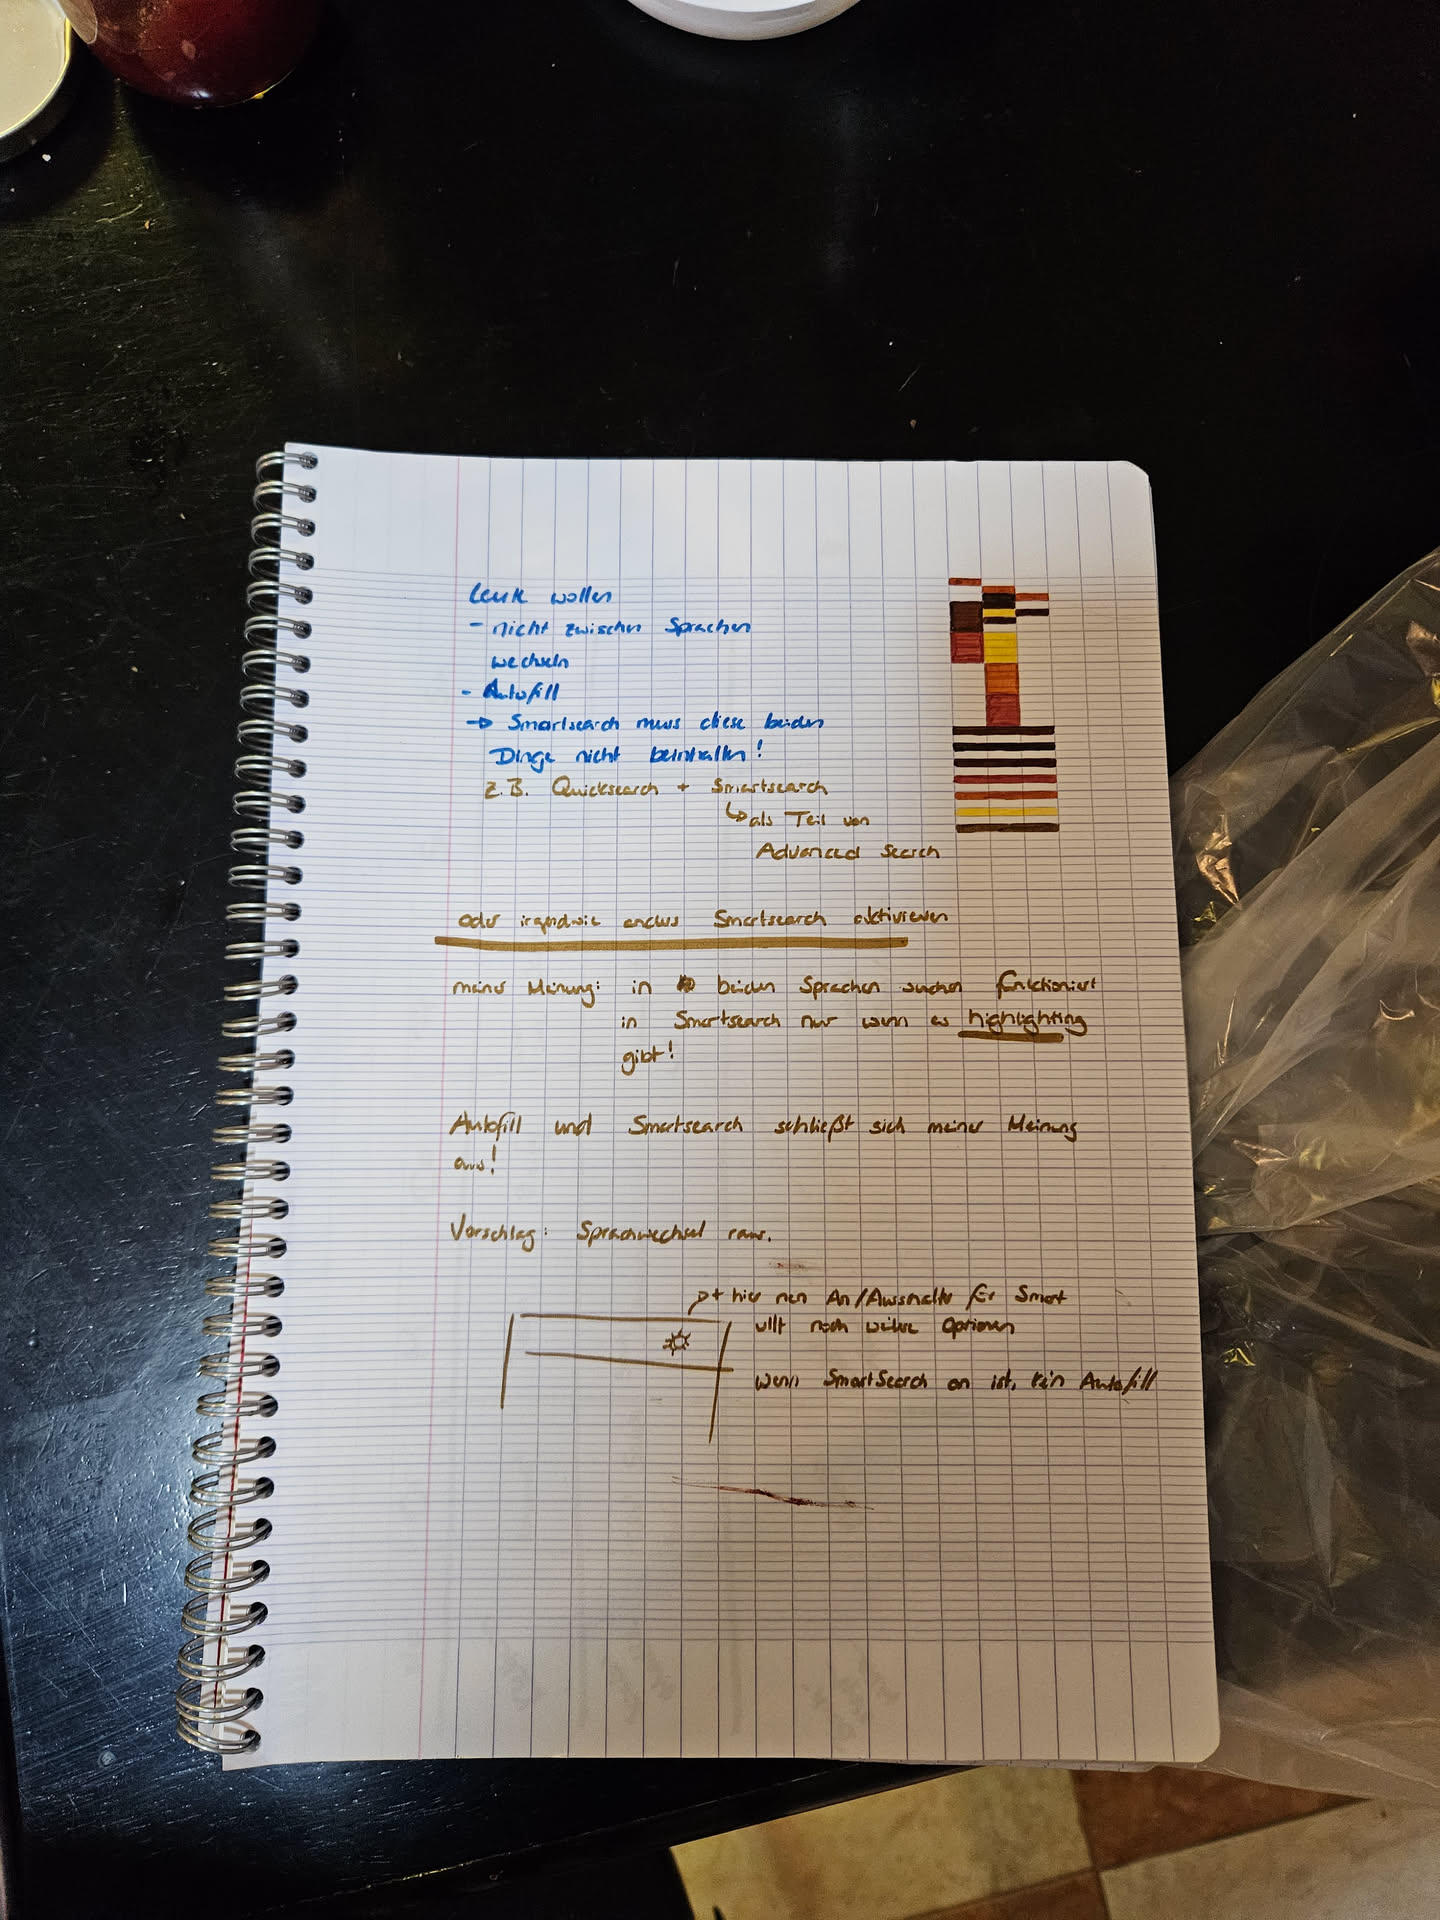 Leute wollen
- nicht zwischen Sprachen
wechseln
- Autofill
→ Smartsearch muss diese beiden
Dinge nicht beinhalten!
z.B. Quicksearch + Smartsearch
↳ als Teil von
Advanced Search
oder irgendwie anders Smartsearch aktivieren
meiner Meinung: in beiden Sprachen suchen funktioniert
in Smartsearch nur wenn es highlighting
gibt!
Autofill und Smartsearch schließt sich meiner Meinung
aus!
Vorschlag: Sprachwechsel raus.
→ + hier nen An/Ausschalter für Smart
vllt noch weitere Optionen
wenn SmartSearch an ist, kein Autofill